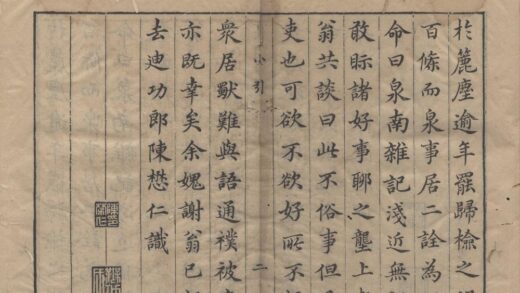 於簏塵逾年罷歸檢之
百條而泉事居二詮為
命曰泉南雜記淺近無
敢眎諸好事聊之壟上
翁共談曰此不俗事但
吏也可欲不欲好所不
小引 二
眾居獸難與語通襆被
亦既幸矣余媿謝翁已
去迪功郎陳懋仁識